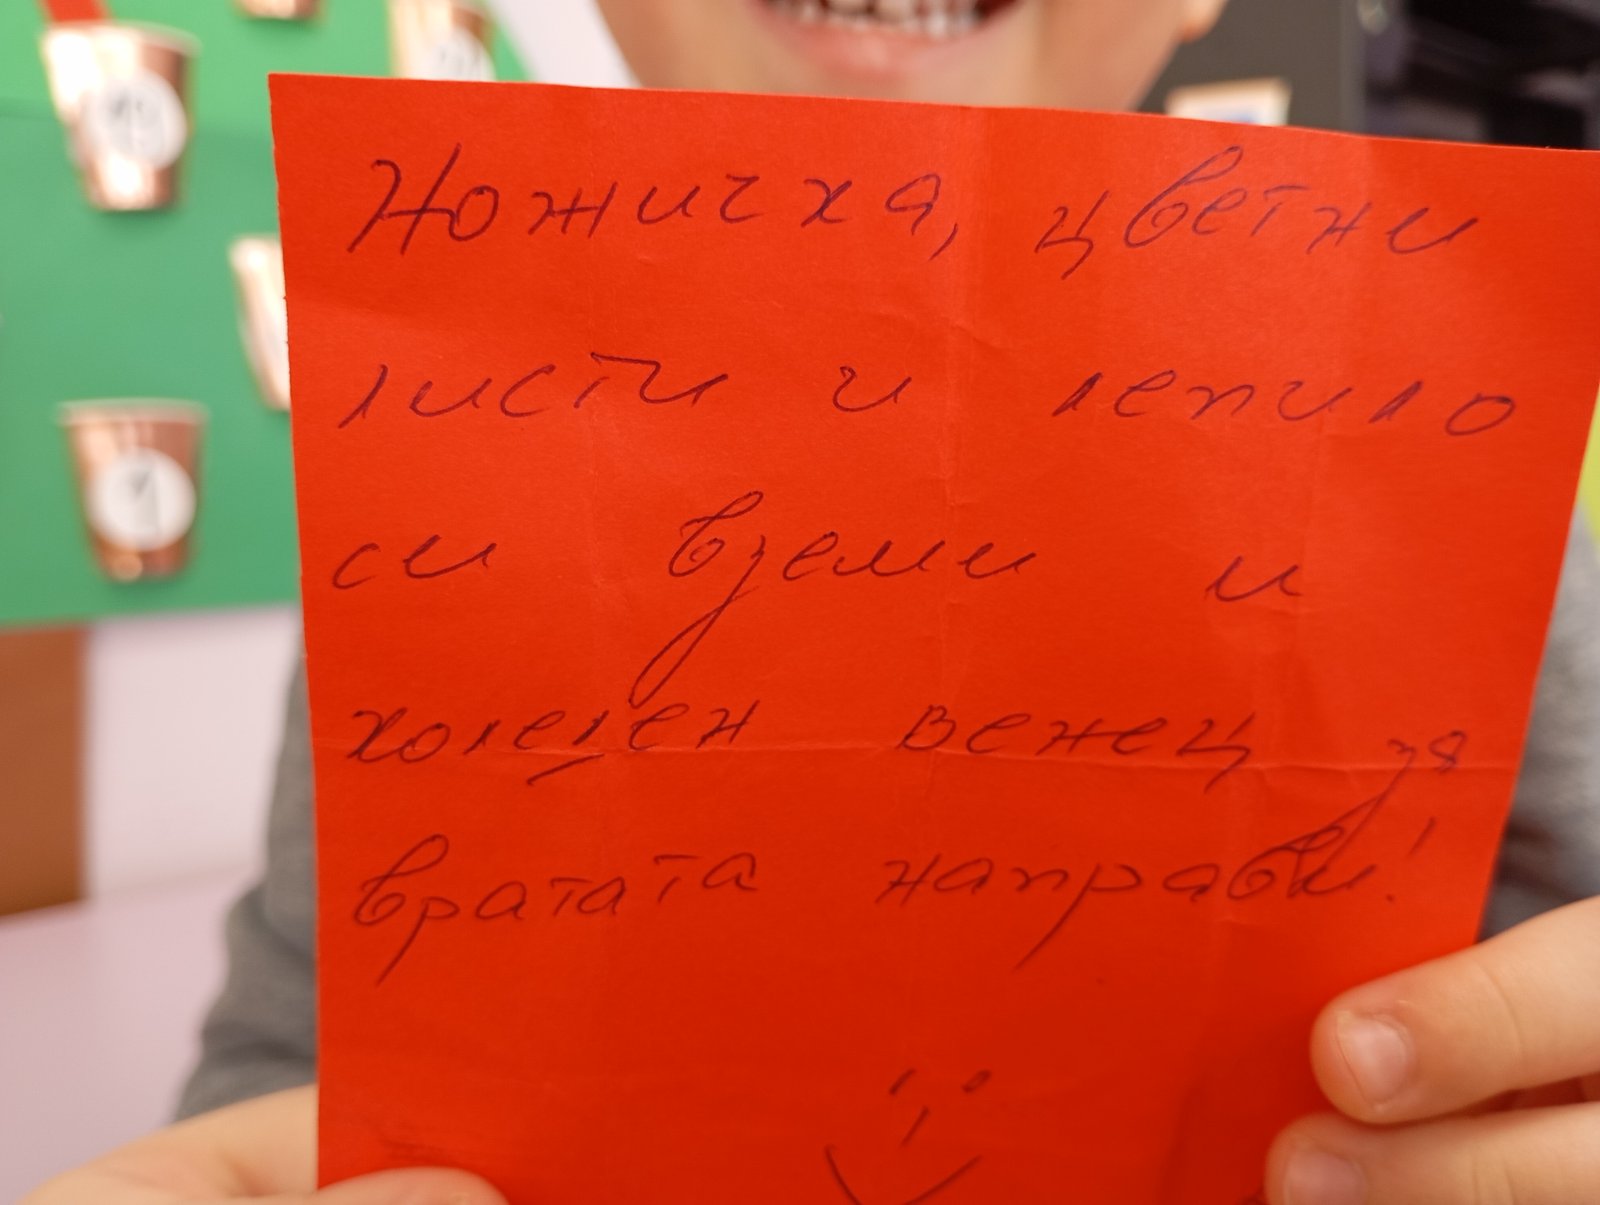 Ножичка, цветни
листи и лепило
си вземи и
коледен венец за
вратата направи!
1